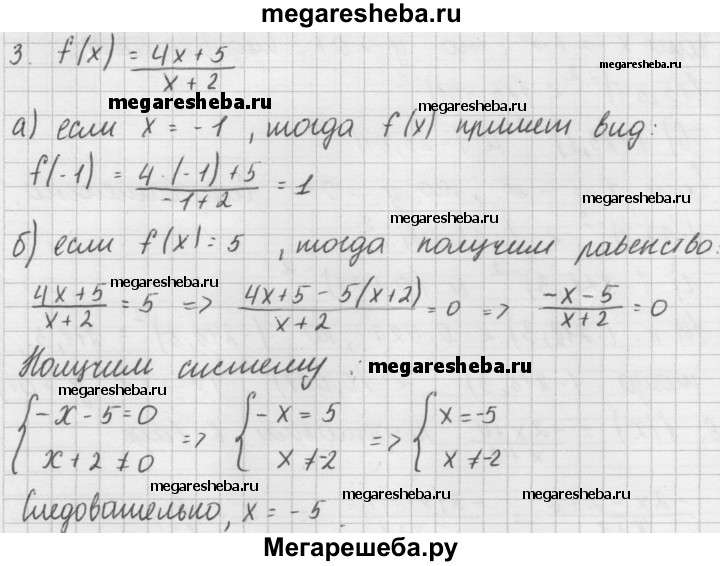 megaresheba.ru
3. f(x) = 4x + 5 / x + 2
megaresheba.ru megaresheba.ru
а) если x = -1 , тогда f(x) примет вид:
megaresheba.ru
f(-1) = 4·(-1) + 5 / -1 + 2 = 1
megaresheba.ru
megaresheba.ru
б) если f(x) = 5 , тогда получим равенство:
megaresheba.ru megaresheba.ru
4x + 5 / x + 2 = 5 => 4x + 5 - 5(x+2) / x + 2 = 0 => -x - 5 / x + 2 = 0
Получим систему :
megaresheba.ru
megaresheba.ru
{ -x - 5 = 0 => { -x = 5 => { x = -5
x + 2 ≠ 0 x ≠ -2 x ≠ -2
megaresheba.ru megaresheba.ru megaresheba.ru
Следовательно, x = - 5 .
Мегарешеба.ру